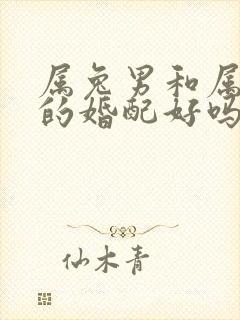 属兔男和属
的婚配好吗
仙木青